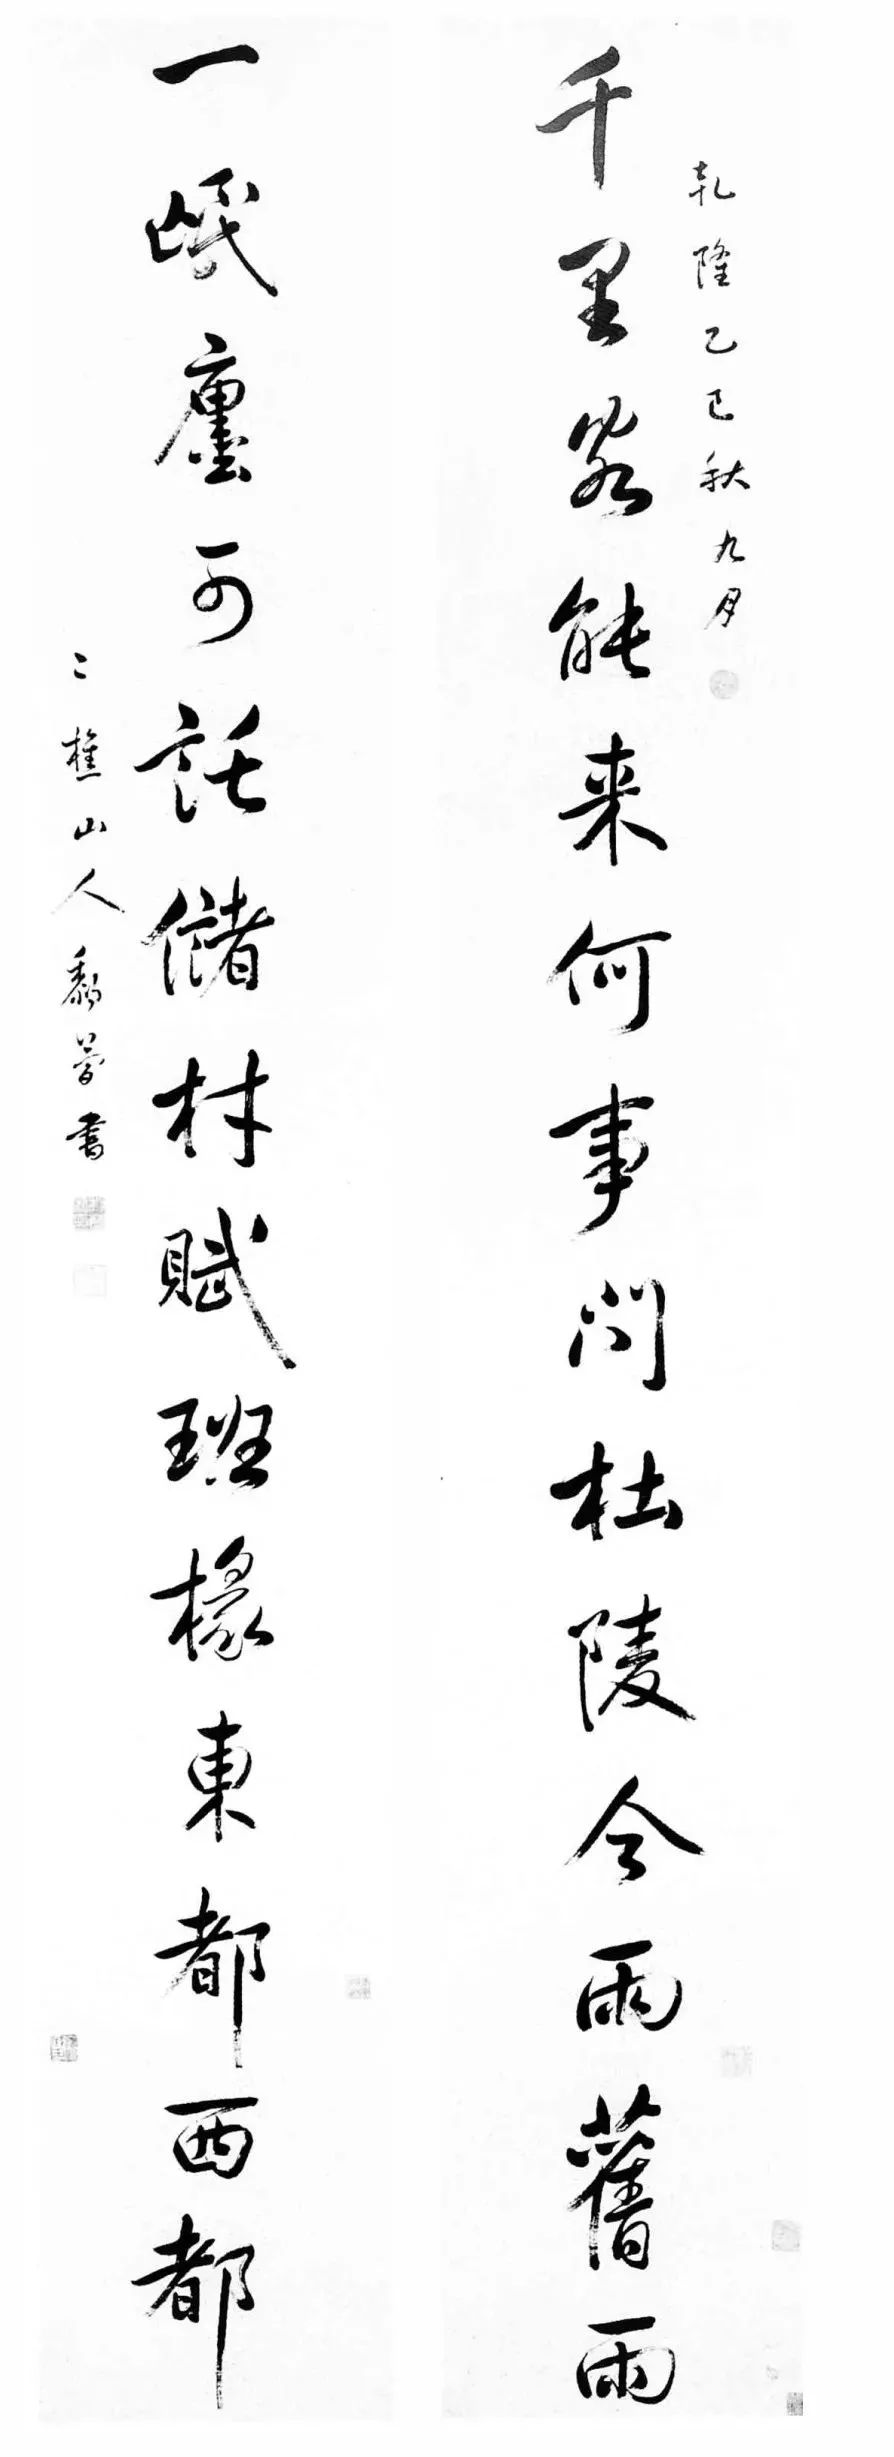 乾隆乙巳秋九月
千里客能来何事問杜陵今雨舊雨
一氓廛可託儲材賦班椽東都西都
二樵山人黎簡書